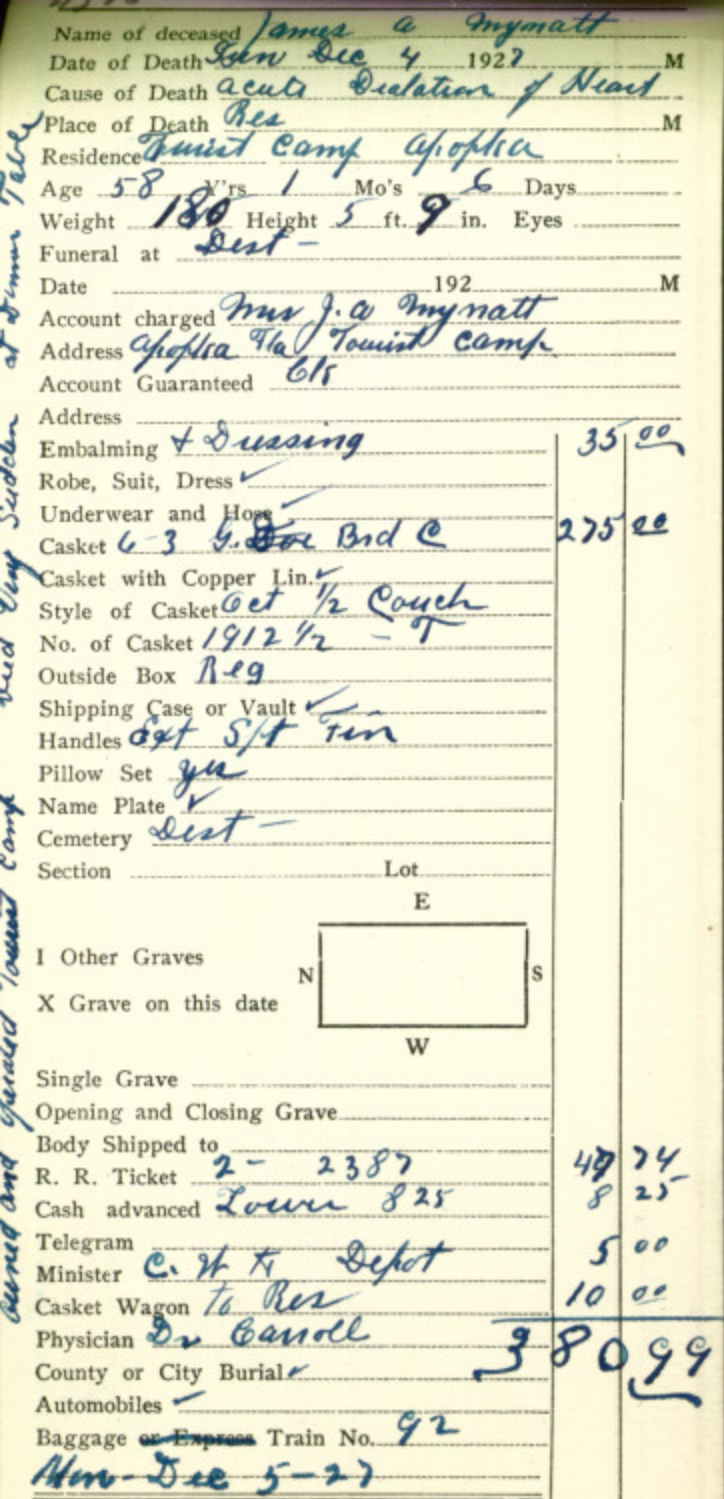 Name of deceased James a Mynatt
Date of Death Sun Dec 4 1927 M
Cause of Death acute Dialation of Heart
Place of Death Res M
Residence Tourist Camp apopka
Age 58 Y'rs 1 Mo's 6 Days
Weight 180 Height 5 ft. 9 in. Eyes
Funeral at Dest -
Date 192 M
Account charged Mrs J. a Mynatt
Address apopka Fla Tourist Camp
Account Guaranteed
Address
Embalming + Dressing 35 00
Robe, Suit, Dress ✓
Underwear and Hose ✓
Casket 6-3 G. Brd C 275 00
Casket with Copper Lin. ✓
Style of Casket Oct 1/2 Couch
No. of Casket 1912 1/2 - T
Outside Box Reg
Shipping Case or Vault ✓
Handles Ext Tin
Pillow Set yes
Name Plate ✓
Cemetery Dest -
Section Lot
E
I Other Graves
N S
X Grave on this date
W
Single Grave
Opening and Closing Grave
Body Shipped to
R. R. Ticket 2- 2387 47 74
Cash advanced Lower 825 8 25
Telegram
Minister C. W to Depot 5 00
Casket Wagon to Res 10 00
Physician Dr Carroll 380 99
County or City Burial ✓
Automobiles ✓
Baggage or Express Train No. 92
Mon - Dec 5-27
owned and operated Tourist Camp died Very Sudden at Dinner Table